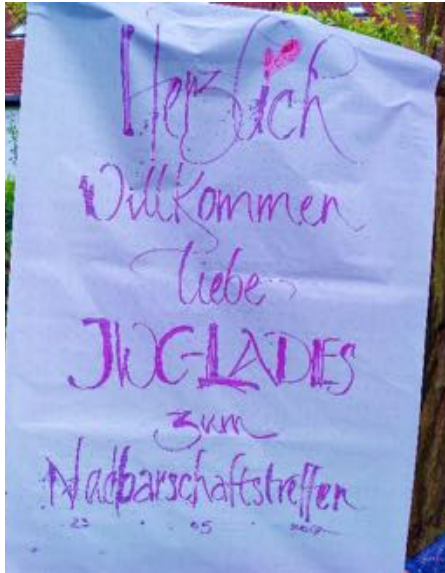 Herzlich
Willkommen
liebe
JWC-LADIES
zum
Nachbarschaftstreffen
23 . 05 .